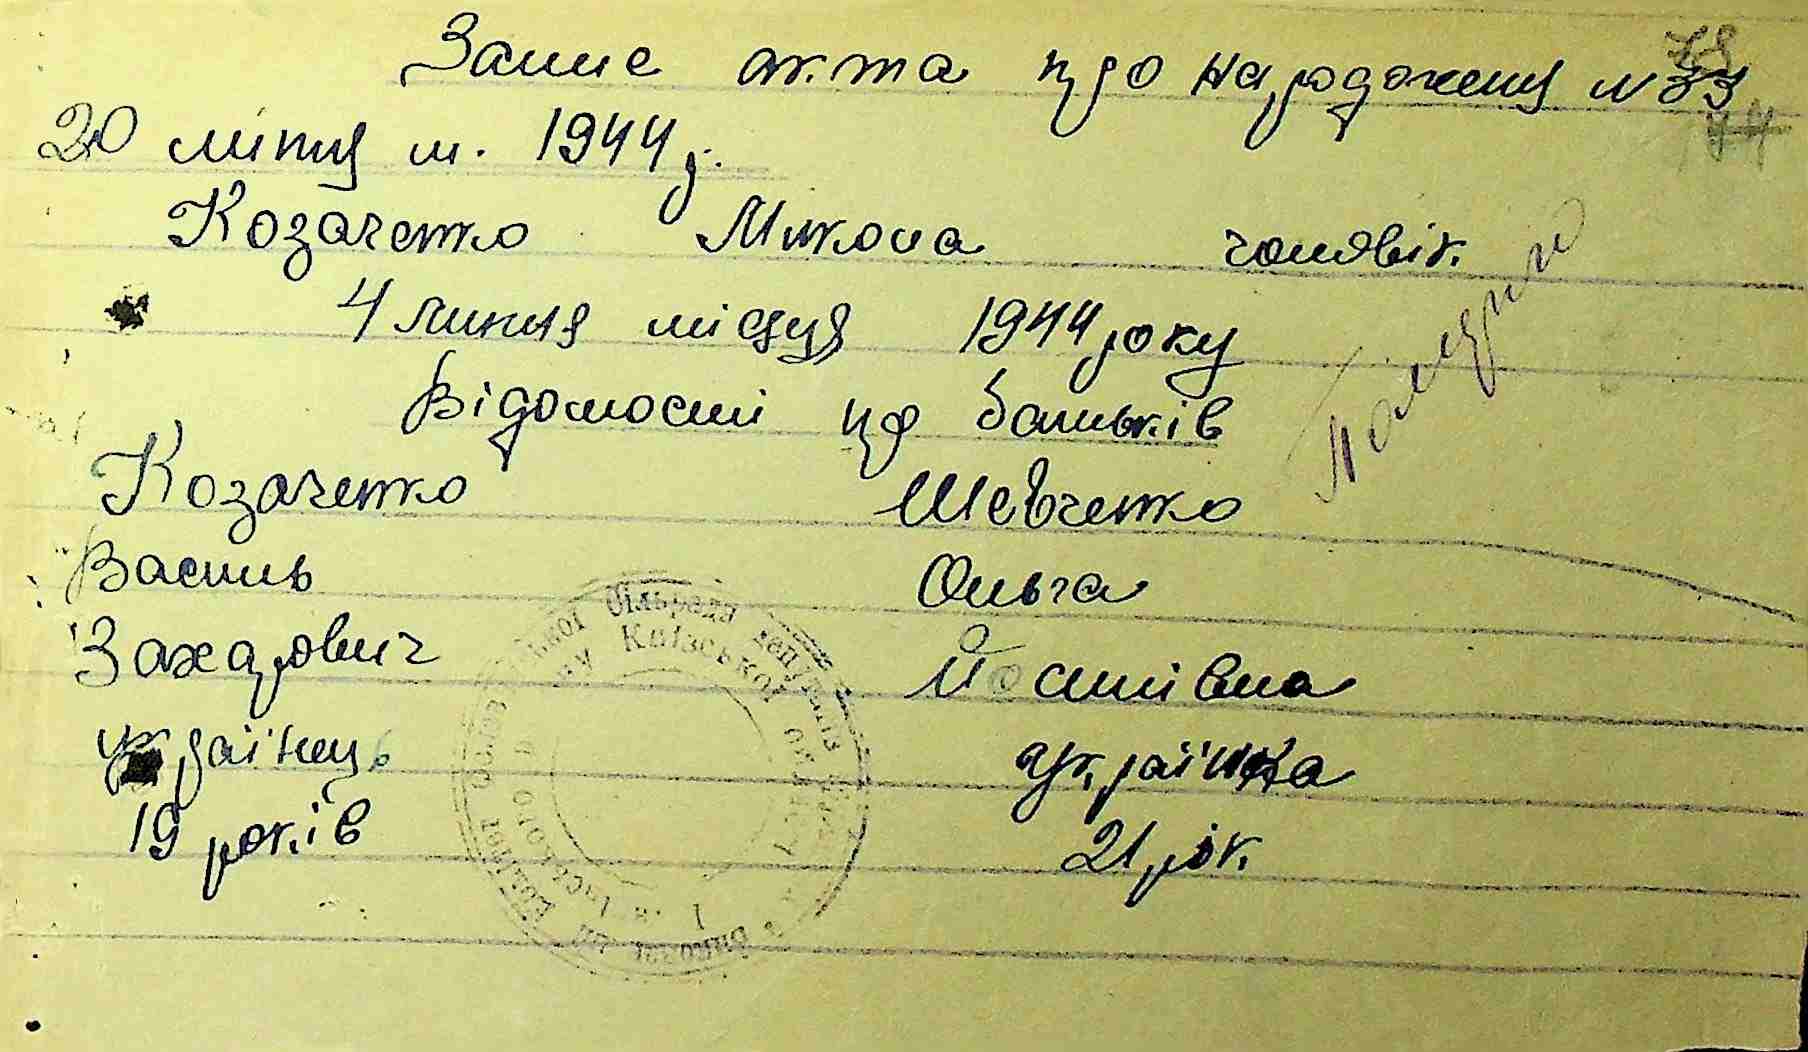 Запис акта про народження № 33
20 липня м. 1944 р.
Козаченко Микола чоловік
4 липня місяця 1944 року
Відомості про батьків
Козаченко Шевченко
Василь Ольга
Захарович Йосипівна
українець українка
19 років 21 рік
Сільрада депутатів
Київської області